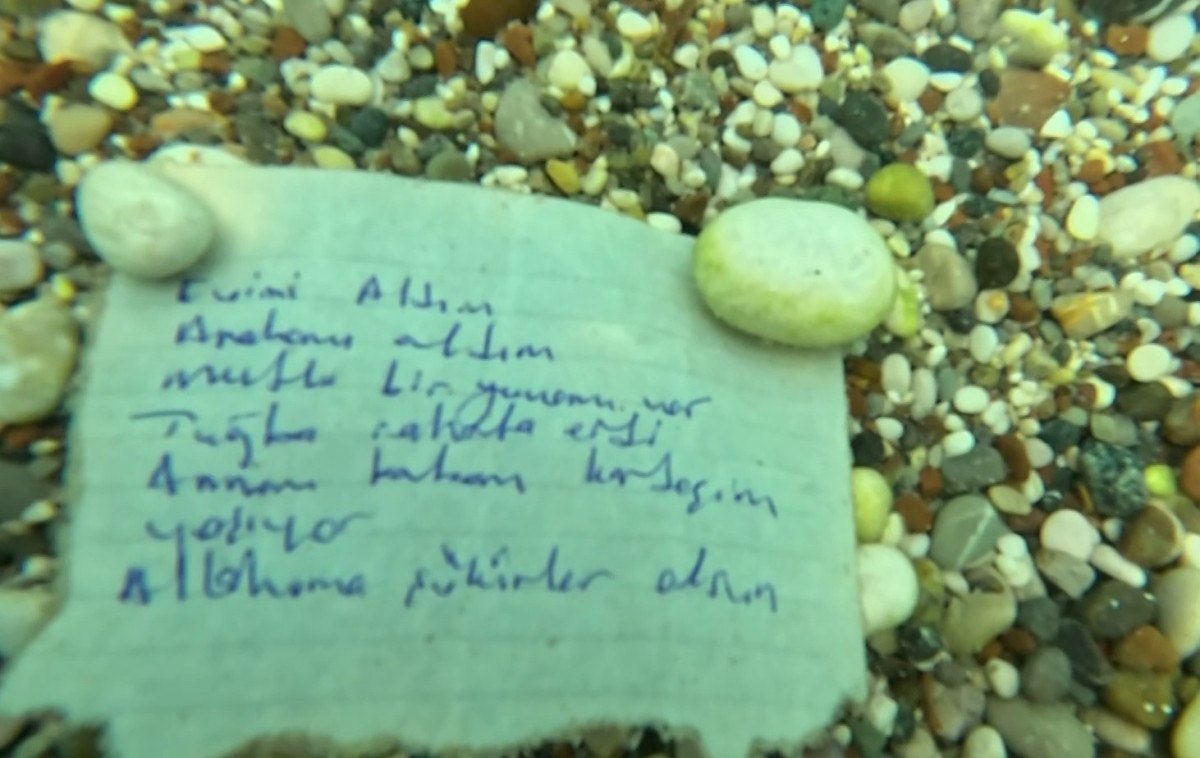 Evimi Aldım
Arabamı aldım
mutlu bir yuvamı var
Tuğba rahata erdi
Annem babam kardeşim
yaşıyor
Allahıma şükürler olsun